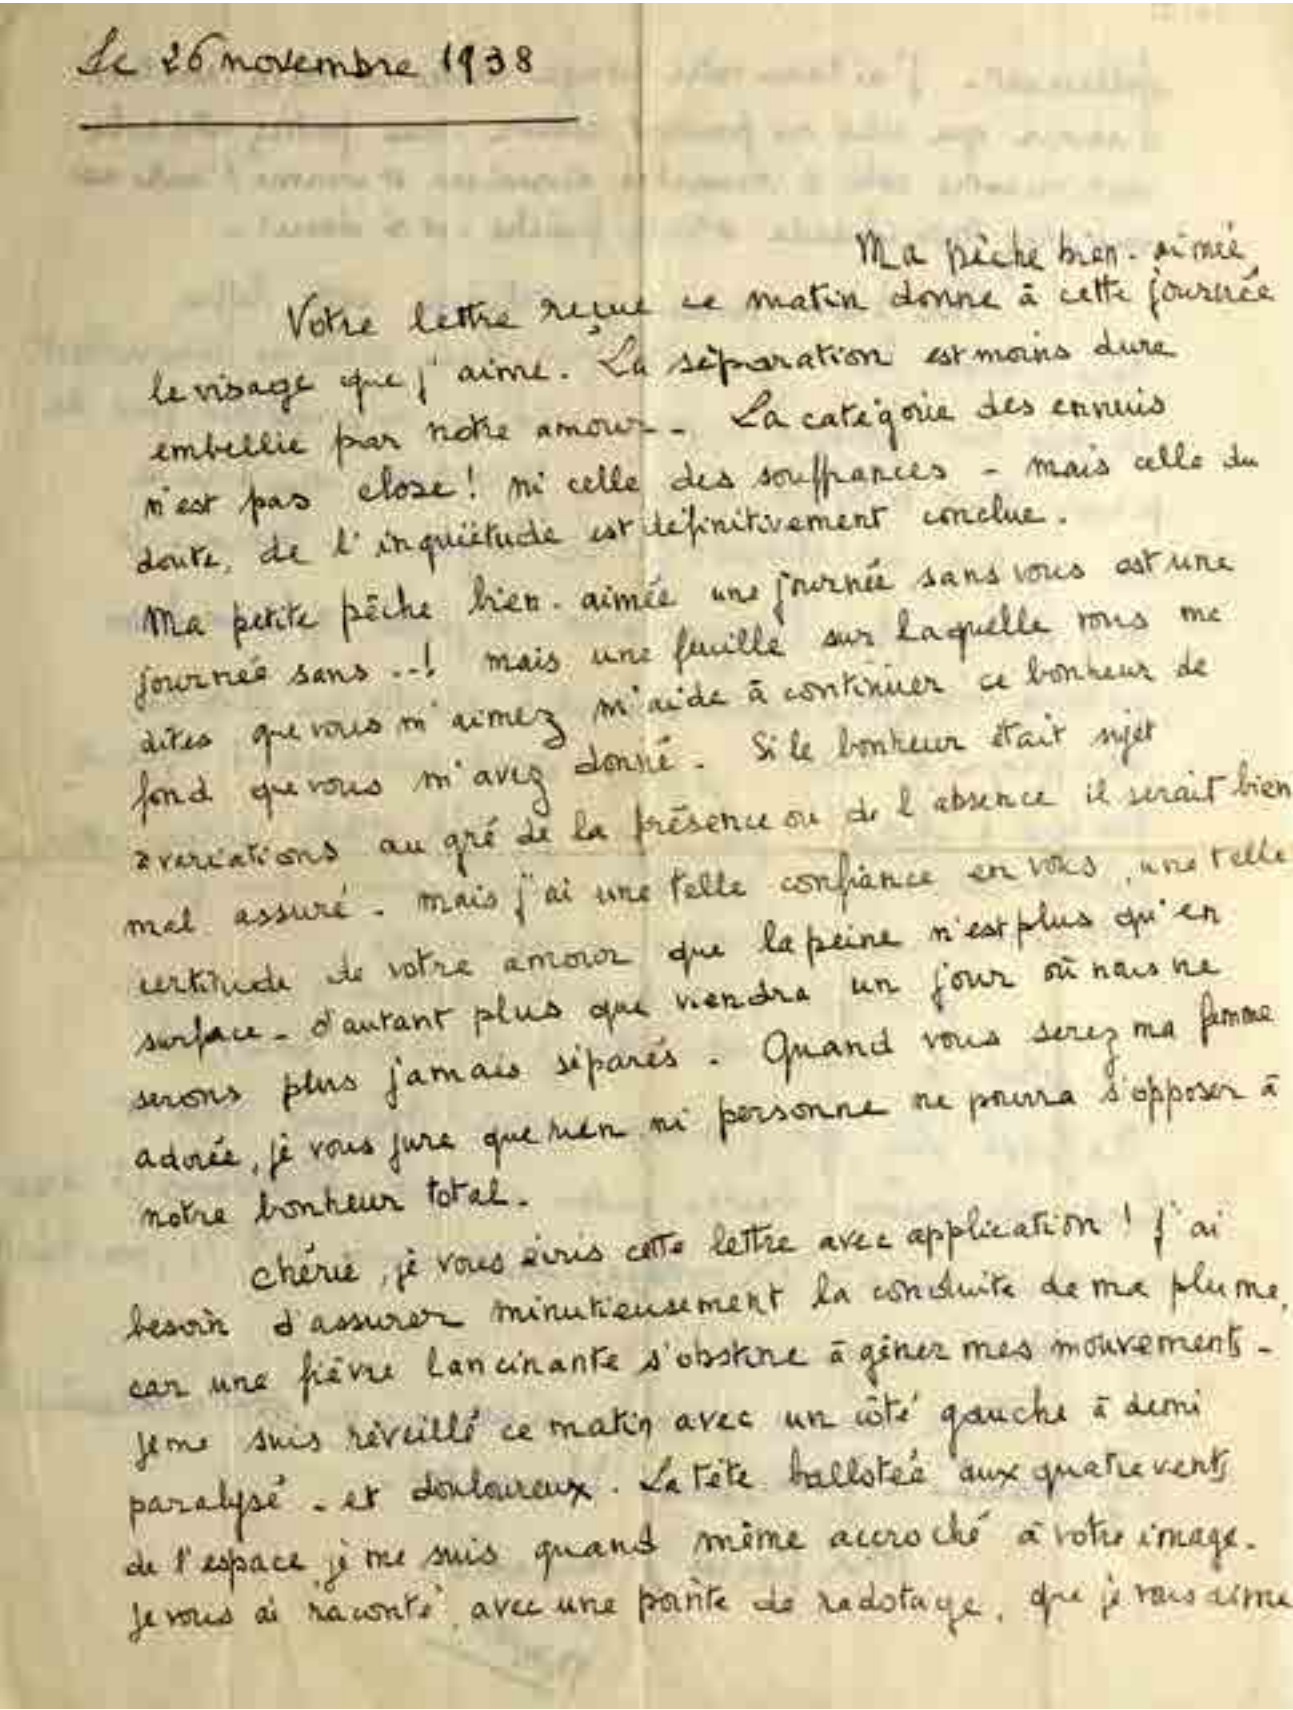 Le 26 novembre 1938
Ma pêche bien-aimée
Votre lettre reçue ce matin donne à cette journée
le visage que j'aime. La séparation est moins dure
embellie par notre amour - La catégorie des ennuis
n'est pas close! ni celle des souffrances - mais celle du
doute, de l'inquiétude est définitivement conclue.
Ma petite pêche bien-aimée une journée sans vous est une
journée sans ..! mais une feuille sur laquelle vous me
dites que vous m'aimez m'aide à continuer ce bonheur de
fond que vous m'avez donné - Si le bonheur était sujet
à variations au gré de la présence ou de l'absence il serait bien
mal assuré - mais j'ai une telle confiance en vous, une telle
certitude de votre amour que la peine n'est plus qu'en
surface - d'autant plus que viendra un jour où nous ne
serons plus jamais séparés - Quand vous serez ma femme
adorée, je vous jure que rien ni personne ne pourra s'opposer à
notre bonheur total -
Chérie, je vous écris cette lettre avec application! J'ai
besoin d'assurer minutieusement la conduite de ma plume,
car une fièvre lancinante s'obstine à gêner mes mouvements -
Je me suis réveillé ce matin avec un côté gauche à demi
paralysé - et douloureux. La tête ballotée aux quatre vents
de l'espace je me suis quand même accroché à votre image -
Je vous ai raconté, avec une pointe de radotage, que je vous aime